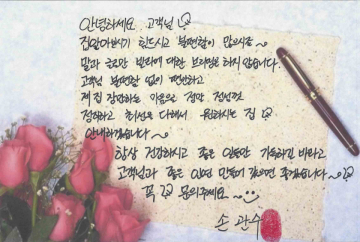 안녕하세요 고객님
집알아보시기 힘드시고 불편함이 많으시죠~
말과 글로만 빌라에 대한 브리핑은 하지 않습니다.
고객님 불편함 없이 편안하고
제 집 장만하는 마음으로 정말 정성껏
정직하고 최선을 다해서 원하시는 집
안내하겠습니다~
항상 건강하시고 좋은 일들만 가득하길 바라고
고객님과 좋은 인연 만들어 갔으면 좋겠습니다~
꼭 문의주세요~
손 관수